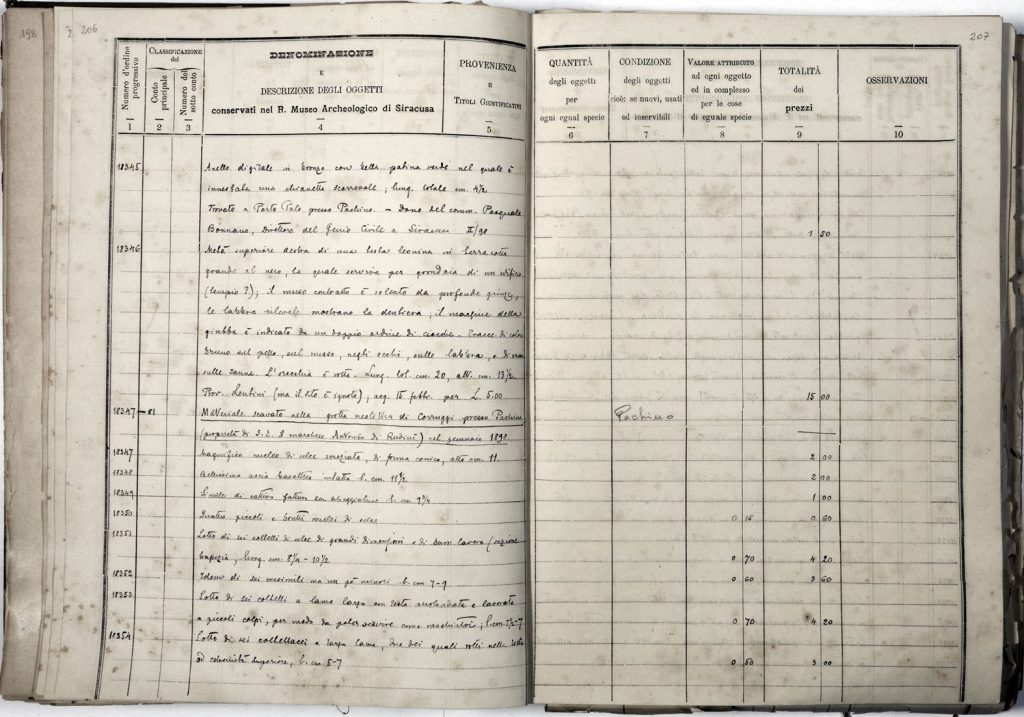 198
2. 206
207
Numero d'ordine progressivo
CLASSIFICAZIONE del
Conto principale
Numero del sotto conto
DENOMINAZIONE
E
DESCRIZIONE DEGLI OGGETTI
conservati nel R. Museo Archeologico di Siracusa
PROVENIENZA
E
TITOLI GIUSTIFICATIVI
1 2 3 4 5
QUANTITÀ
degli oggetti
per
ogni egual specie
6
CONDIZIONE
degli oggetti
cioè: se nuovi, usati
od inservibili
7
VALORE ATTRIBUITO
ad ogni oggetto
od in complesso
per le cose
di eguale specie
8
TOTALITÀ
dei
prezzi
9
OSSERVAZIONI
10
18345 Anello digitale in bronzo con bella patina verde nel quale è
innestata una chiavetta scorrevole; lung. totale cm. 4 1/2
Trovato a Porto Palo presso Pachino. – Dono del comm. Pasquale
Bonnano, Direttore del Genio Civile a Siracusa II/98 1 50
18346 Metà superiore destra di una testa leonina in terra cotta
grande al vero, la quale serviva per grondaia di un edificio
(tempio?); il muso contratto è solcato da profonde
le labbra rilevate mostrano la dentiera; il margine della
giubba è indicato da un doppio ordine di ciocche. Tracce di color
bruno sul pelo, sul muso, negli occhi, sulle labbra, e di
sulle zanne. L'orecchia è rotta. Lung. tot. cm. 20, alt. cm. 13 1/2.
Prov. Lentini (ma il sito è ignoto); acq. 15 febbr. per L. 5.00 15 00
18347–81 Materiale scavato nella grotta neolitica di Corruggi presso Pachino Pachino
(proprietà di S. E. il marchese Antonio di Rudinì) nel gennaio 1898.
18347 Magnifico nucleo di selce screziata, di forma conica, alto cm. 11. 2 00
18348 Bellissima ascia basaltica intatta l. cm. 11 1/2 2 00
18349 Simile di cattiva fattura con l. cm. 9 3/4 1 00
18350 Quattro piccoli e nuclei di selce 0 15 0 60
18351 Lotto di sei coltelli di selce di grandi dimensioni e di buon lavoro (sezione
trapezia, lung. cm. 8 1/4 – 10 1/2 0 70 4 20
18352 Idem di sei consimili ma un pò minori l. cm 7-9 0 60 3 60
18353 Lotto di sei coltelli a lama larga con testa arrotondata e lavorata
a piccoli colpi, per modo da poter servire come raschiatoi; l. cm 5 1/2-7 0 70 4 20
18354 Lotto di sei coltellacci a larga lama, due dei quali rotti nella
ad estremità superiore, l. cm. 5-7 0 50 3 00